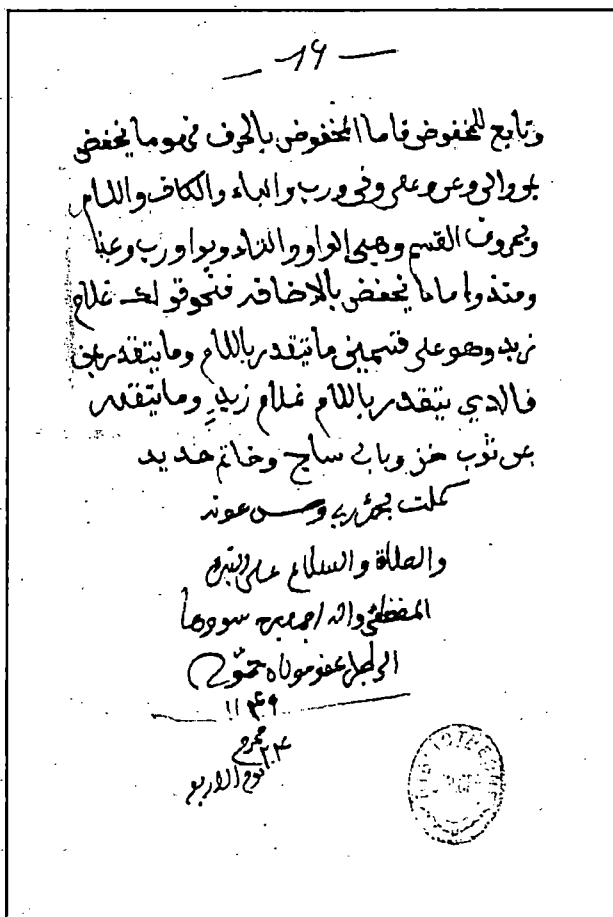 — 19 —
وتابع للمخفوض فاما المخفوض بالحرف فهو ما يخفض
بمن والى وعن وعلى وفي ورب والباء والكاف واللام
وبحروف القسم وهي الواو والتاء وبواو رب وبمذ
ومنذ واما ما يخفض بالاضافة فنحو قولك غلام
زيد وهو على قسمين ما يتقدر باللام وما يتقدر بمن
فالدي يتقدر باللام غلام زيدٍ وما يتقدر
بمن ثوب خز وباب ساج وخاتم حديد
كملت بحمد ربي وحسن عونه
والصلاة والسلام على النبي
المصطفى واله سودها
الراجي عفو مولاه حمو
١١٤٩
٢٤ محرم
يوم الاربع
BIBLIOTHEQUE